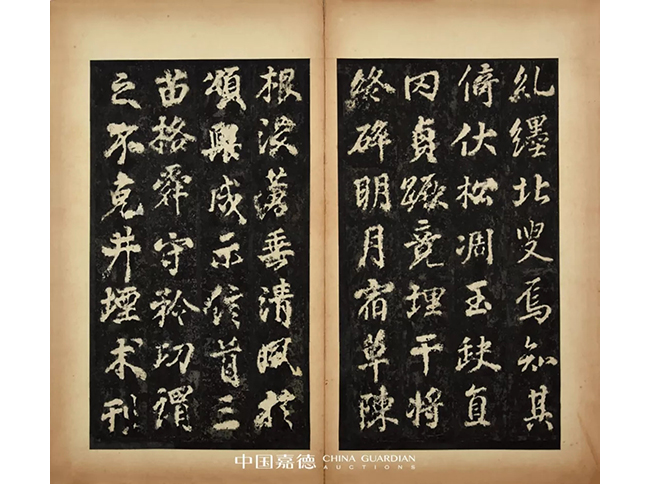 糺纆北叟焉知其
倚伏松凋玉缺直
囚貞蹶竟埋干將
終碎明月宿草陳
根垂清風於
頌興成示信首三
苗格舜守矜功謂
之不克井堙木刊
中国嘉德 CHINA GUARDIAN
AUCTIONS